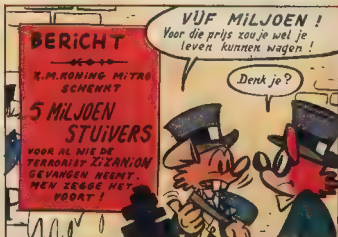 BERICHT
Z.M. KONING MITRO
SCHENKT
5 MILJOEN
STUIVERS
VOOR AL WIE DE
TERRORIST ZIZANION
GEVANGEN NEEMT.
MEN ZEGGE HET
VOORT!
VIJF MILJOEN!
Voor die prijs zou je wel je
leven kunnen wagen!
Denk je?